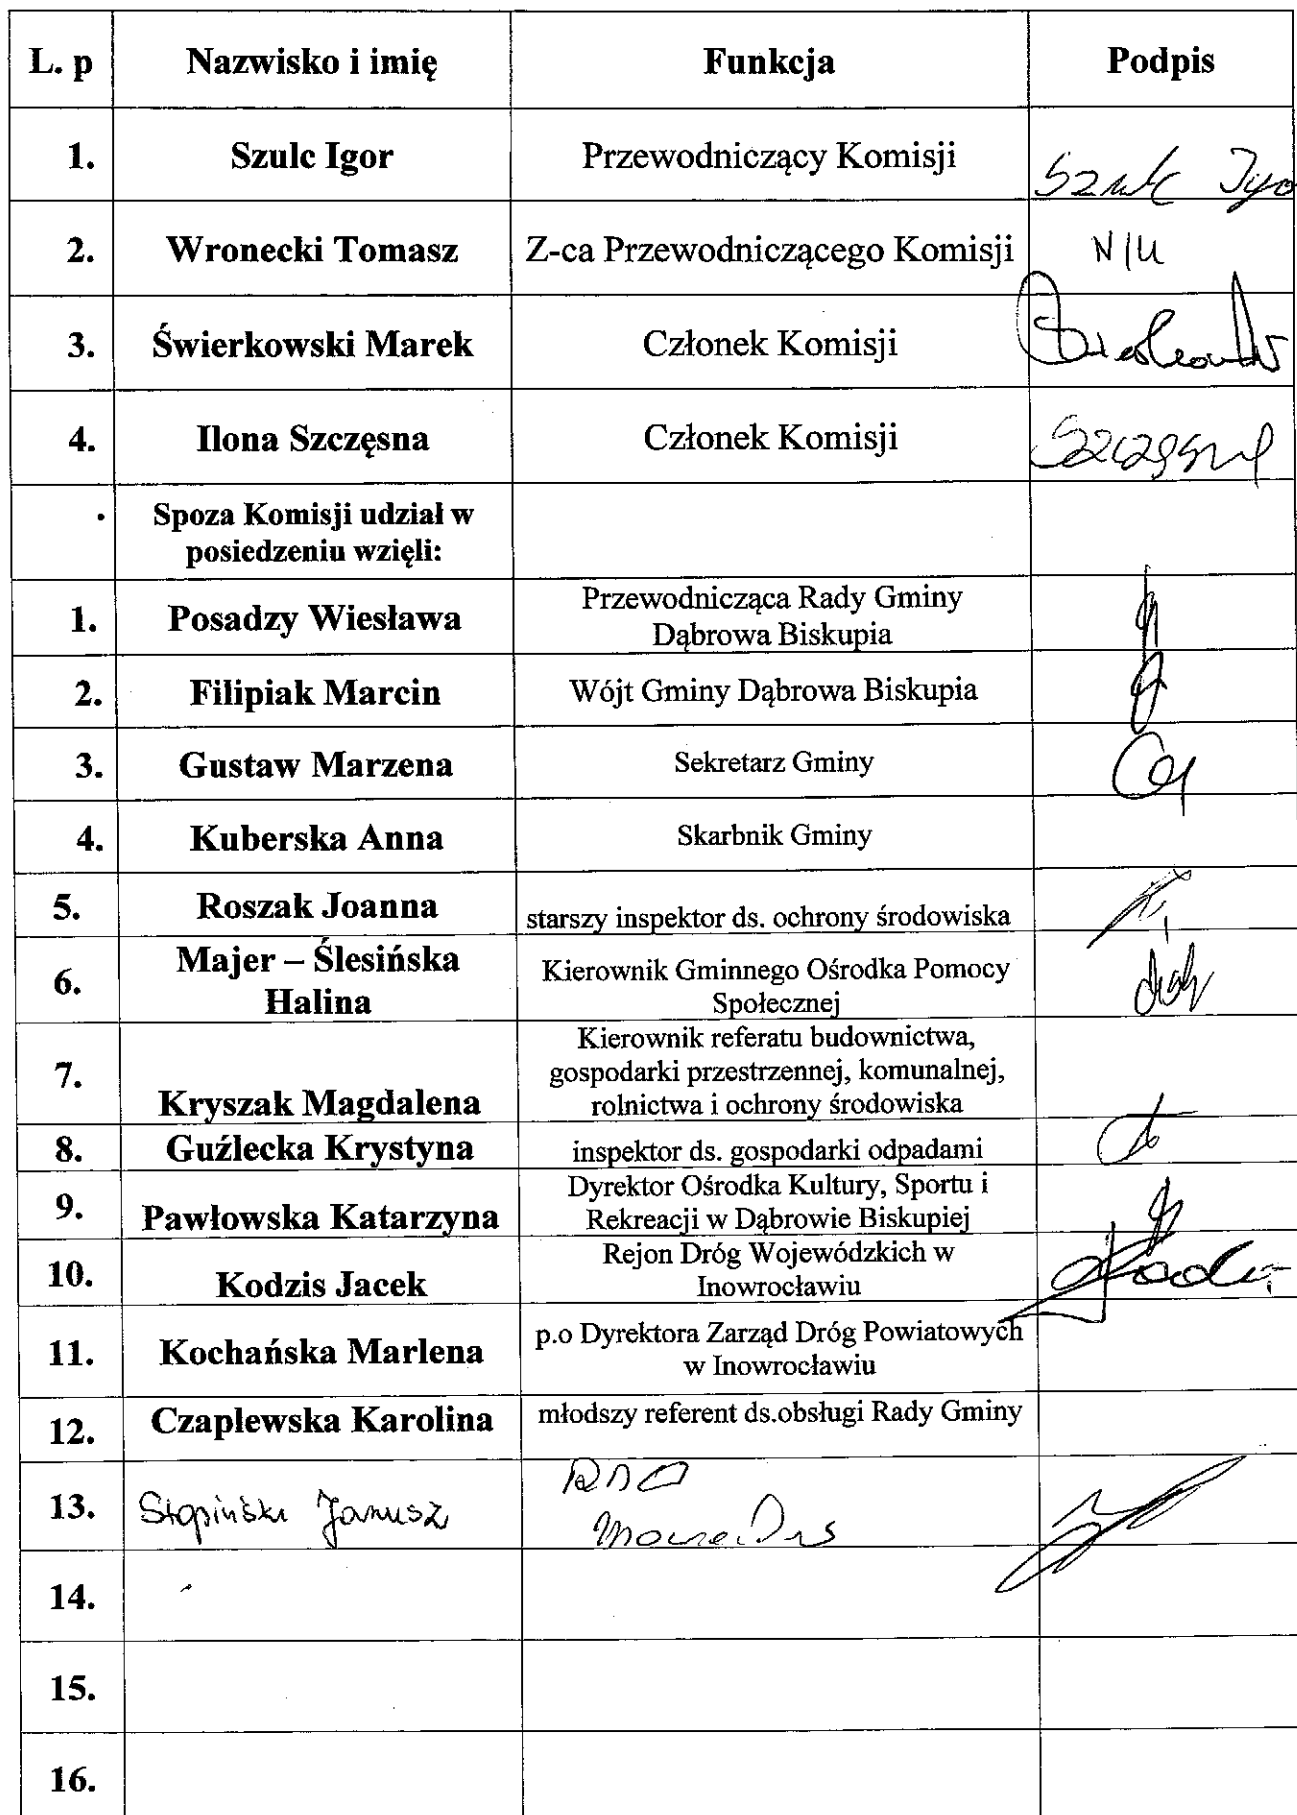 L. p Nazwisko i imię Funkcja Podpis
1. Szulc Igor Przewodniczący Komisji Szulc Igo
2. Wronecki Tomasz Z-ca Przewodniczącego Komisji N/U
3. Świerkowski Marek Członek Komisji
4. Ilona Szczęsna Członek Komisji Szczęsna
Spoza Komisji udział w
posiedzeniu wzięli:
1. Posadzy Wiesława Przewodnicząca Rady Gminy
Dąbrowa Biskupia
2. Filipiak Marcin Wójt Gminy Dąbrowa Biskupia
3. Gustaw Marzena Sekretarz Gminy
4. Kuberska Anna Skarbnik Gminy
5. Roszak Joanna starszy inspektor ds. ochrony środowiska
6. Majer – Ślesińska
Halina
Kierownik Gminnego Ośrodka Pomocy
Społecznej
7. Kryszak Magdalena
Kierownik referatu budownictwa,
gospodarki przestrzennej, komunalnej,
rolnictwa i ochrony środowiska
8. Guźlecka Krystyna inspektor ds. gospodarki odpadami
9. Pawłowska Katarzyna
Dyrektor Ośrodka Kultury, Sportu i
Rekreacji w Dąbrowie Biskupiej
10. Kodzis Jacek
Rejon Dróg Wojewódzkich w
Inowrocławiu
11. Kochańska Marlena
p.o Dyrektora Zarząd Dróg Powiatowych
w Inowrocławiu
12. Czaplewska Karolina młodszy referent ds.obsługi Rady Gminy
13. Stopiński Janusz
14.
15.
16.